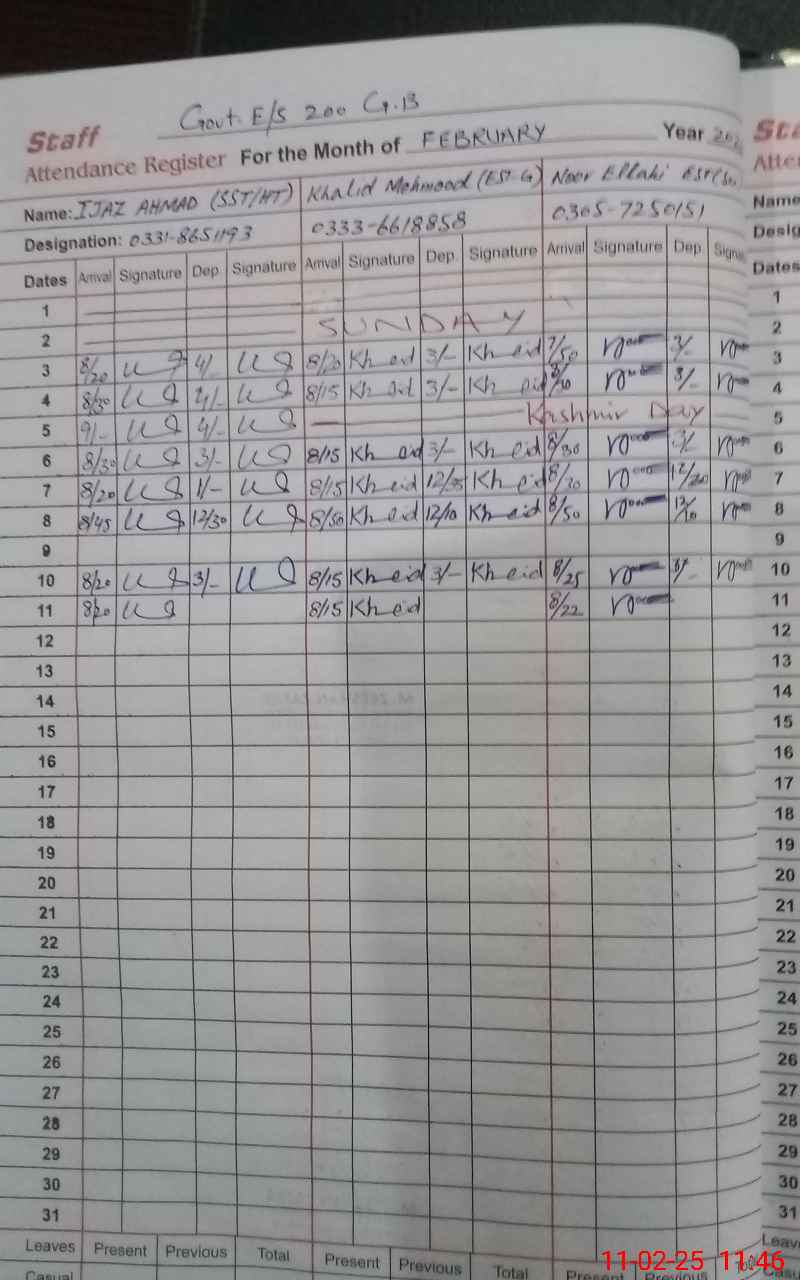 Govt. E/S 200 G.B
Staff
Attendance Register For the Month of FEBRUARY Year
Name: IJAZ AHMAD (SST/HT) Khalid Mehmood (EST-G) Noor Ellahi EST
Designation: 0331-8651193 0333-6618858 0305-7250151
Dates Arrival Signature Dep. Signature Arrival Signature Dep. Signature Arrival Signature Dep.
1
2 SUNDAY
3 8/20 4/- 8/20 Kh eid 3/- Kh eid 7/50 3/-
4 8/30 8/15 Kh eid 3/- Kh eid 3/-
5 9/- 4/- Kashmir Day
6 8/30 3/- 8/15 Kh eid 3/- Kh eid 8/30
7 8/20 1/- 8/15 Kh eid Kh eid
8 8/45 12/30 8/50 Kh eid 12/10 Kh eid 8/50 12/10
9
10 8/20 3/- 8/15 Kh eid 3/- Kh eid 8/25 3/-
11 8/20 8/15 Kh eid 8/22
12
13
14
15
16
17
18
19
20
21
22
23
24
25
26
27
28
29
30
31
Leaves Present Previous Total Present Previous Total Present Previous
Casual
Name
Dates
1
2
3
4
5
6
7
8
9
10
11
12
13
14
15
16
17
18
19
20
21
22
23
24
25
26
27
28
29
30
31
11-02-25 11:46